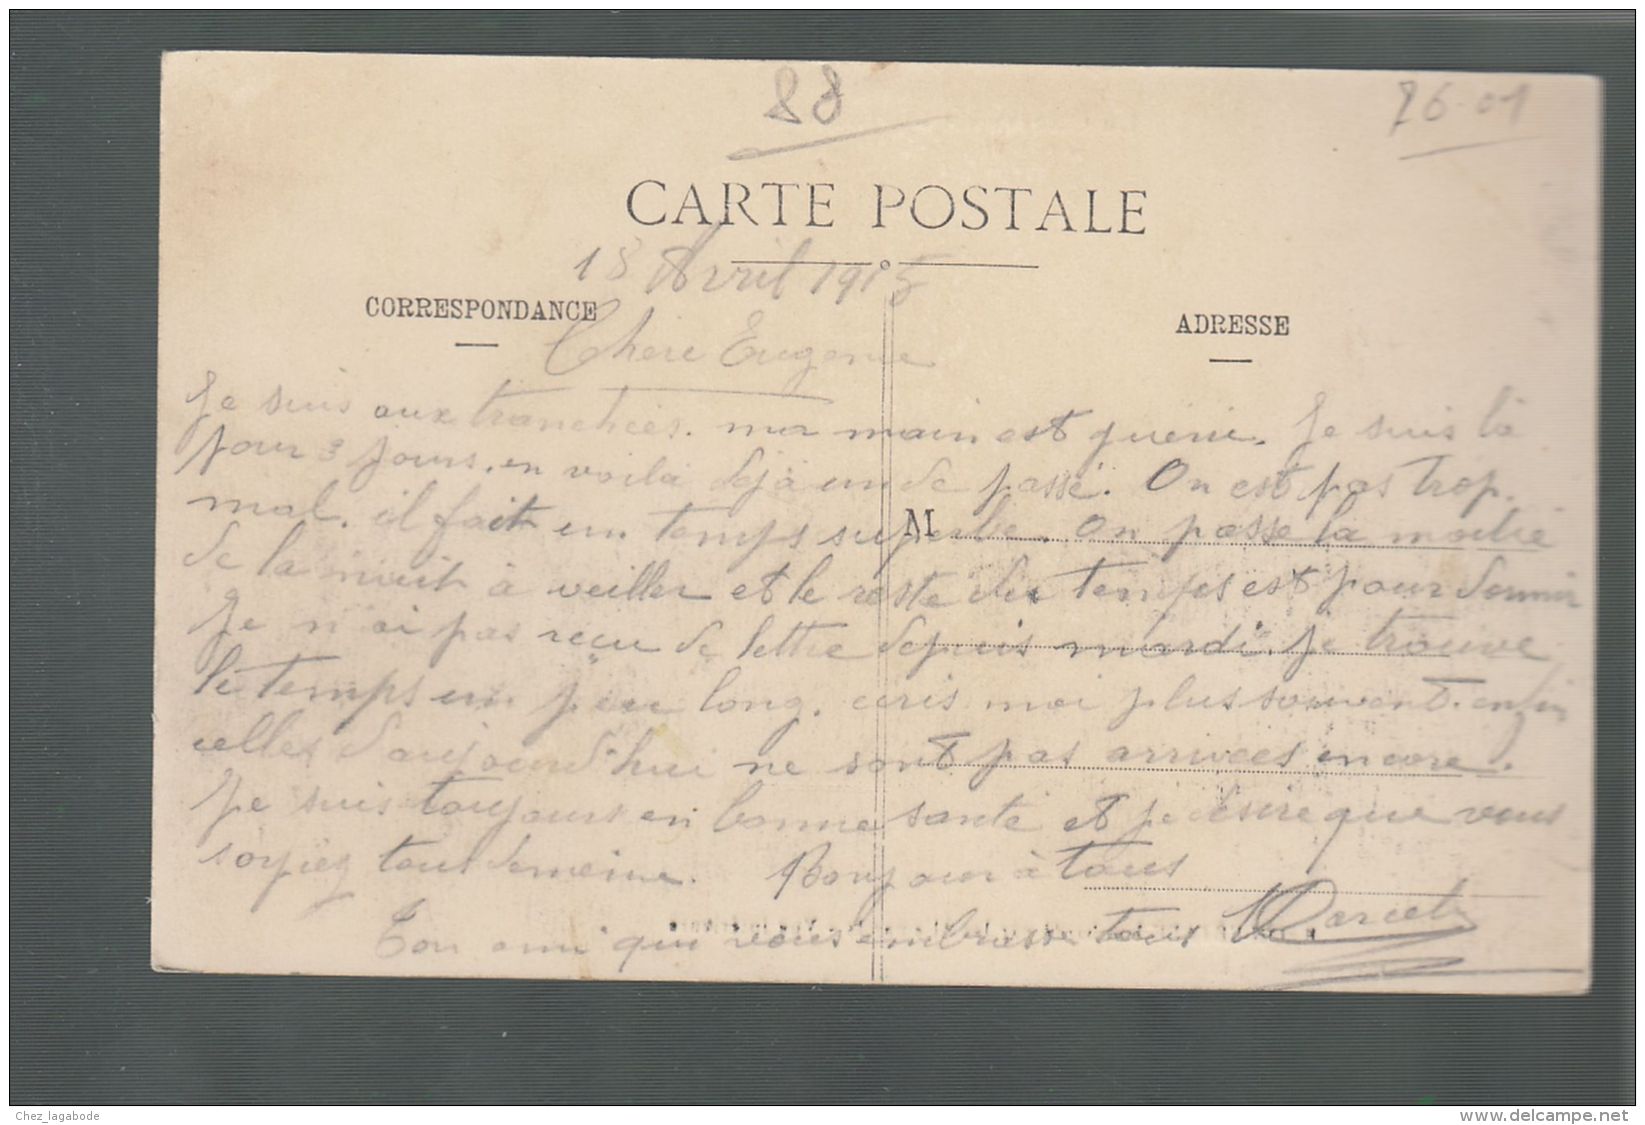 88
26-01
CARTE POSTALE
18 Avril 1915
CORRESPONDANCE
ADRESSE
Chere Eugenie
Je suis aux tranchées. ma main est guérie. Je suis là
pour 3 jours. en voilà déjà un de passé. On est pas trop
mal. il fait un temps superbe. On passe la moitié
M
de la nuit à veiller et le reste du temps est pour dormir
Je n'ai pas reçu de lettre depuis mardi. je trouve
le temps un peu long. ecris moi plus souvent. enfin
celles d'aujourd'hui ne sont pas arrivées encore.
Je suis toujours en bonne santé et je désire que vous
soyiez tous de meme. Bonjour à tous
Ton ami qui vous embrasse tous Marcel
Chez_lagabode
www.delcampe.net